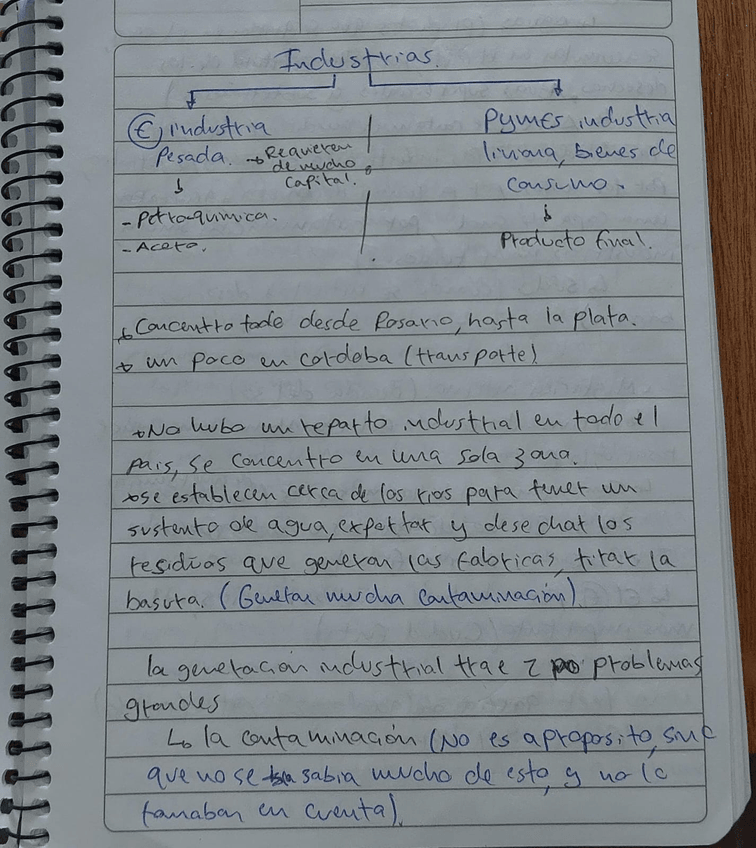 Industrias.
(E) industria
Pesada. → Requieren
de mucho
capital.
- Petroquimica.
- Acero.
PYMES industria
liviana, bienes de
consumo.
↓
Producto final.
Concentro todo desde Rosario, hasta la plata.
un poco en cordoba (transporte)
No hubo un reparto industrial en todo el
pais, se concentro en una sola zona.
se establecen cerca de los rios para tener un
sustento de agua, exportar y desechar los
residuos que generan las fabricas, tirar la
basura. (Generan mucha contaminación)
la generación industrial trae 2 problemas
grandes
↳ la contaminación (No es aproposito, sino
que no se sabia mucho de esto, y no lo
tomaban en cuenta).